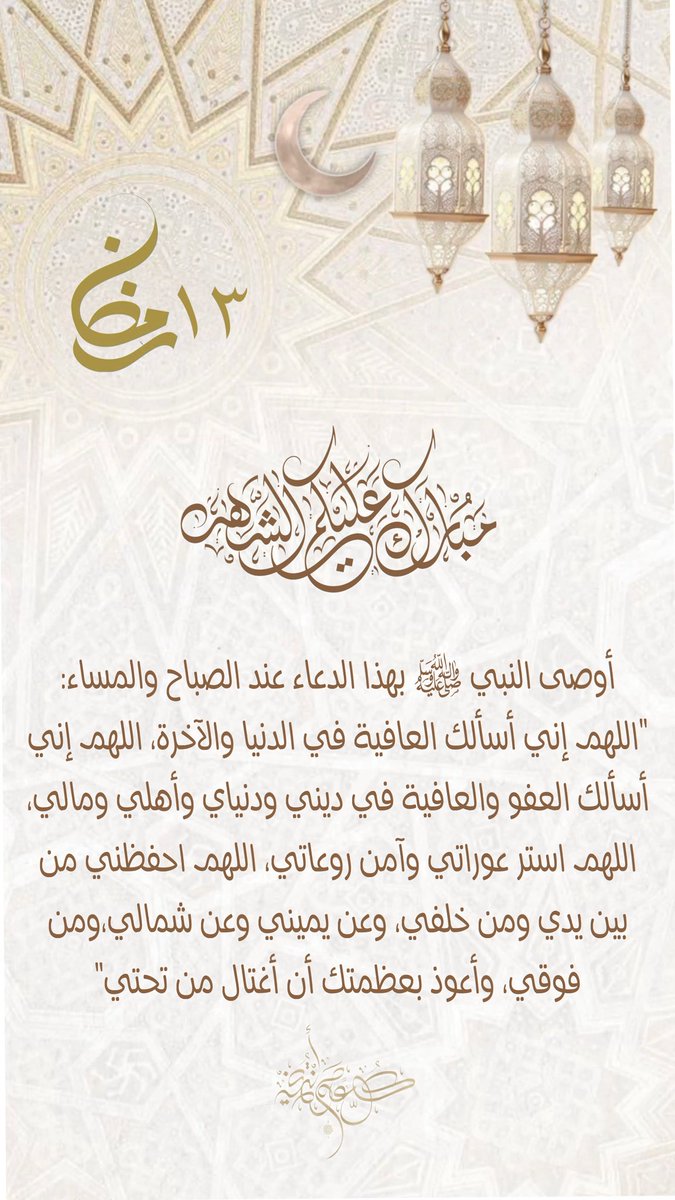 ١٣ رمضان
مُبارَك عَليكم الشَّهر
أوصى النبي ﷺ بهذا الدعاء عند الصباح والمساء:
"اللهم إني أسألك العافية في الدنيا والآخرة، اللهم إني
أسألك العفو والعافية في ديني ودنياي وأهلي ومالي،
اللهم استر عوراتي وآمن روعاتي، اللهم احفظني من
بين يدي ومن خلفي، وعن يميني وعن شمالي،ومن
فوقي، وأعوذ بعظمتك أن أغتال من تحتي"